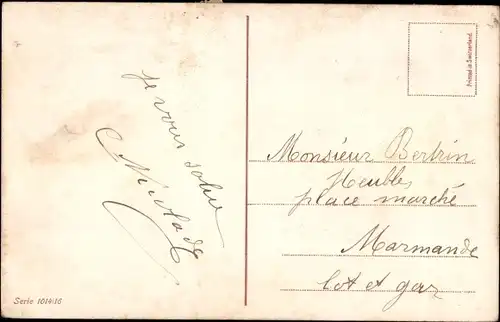 Printed in Switzerland.
je vous salue
Nicolade
Monsieur Bertrin
Meubles
place marché
Marmande
lot et gar
Serie 1014:16